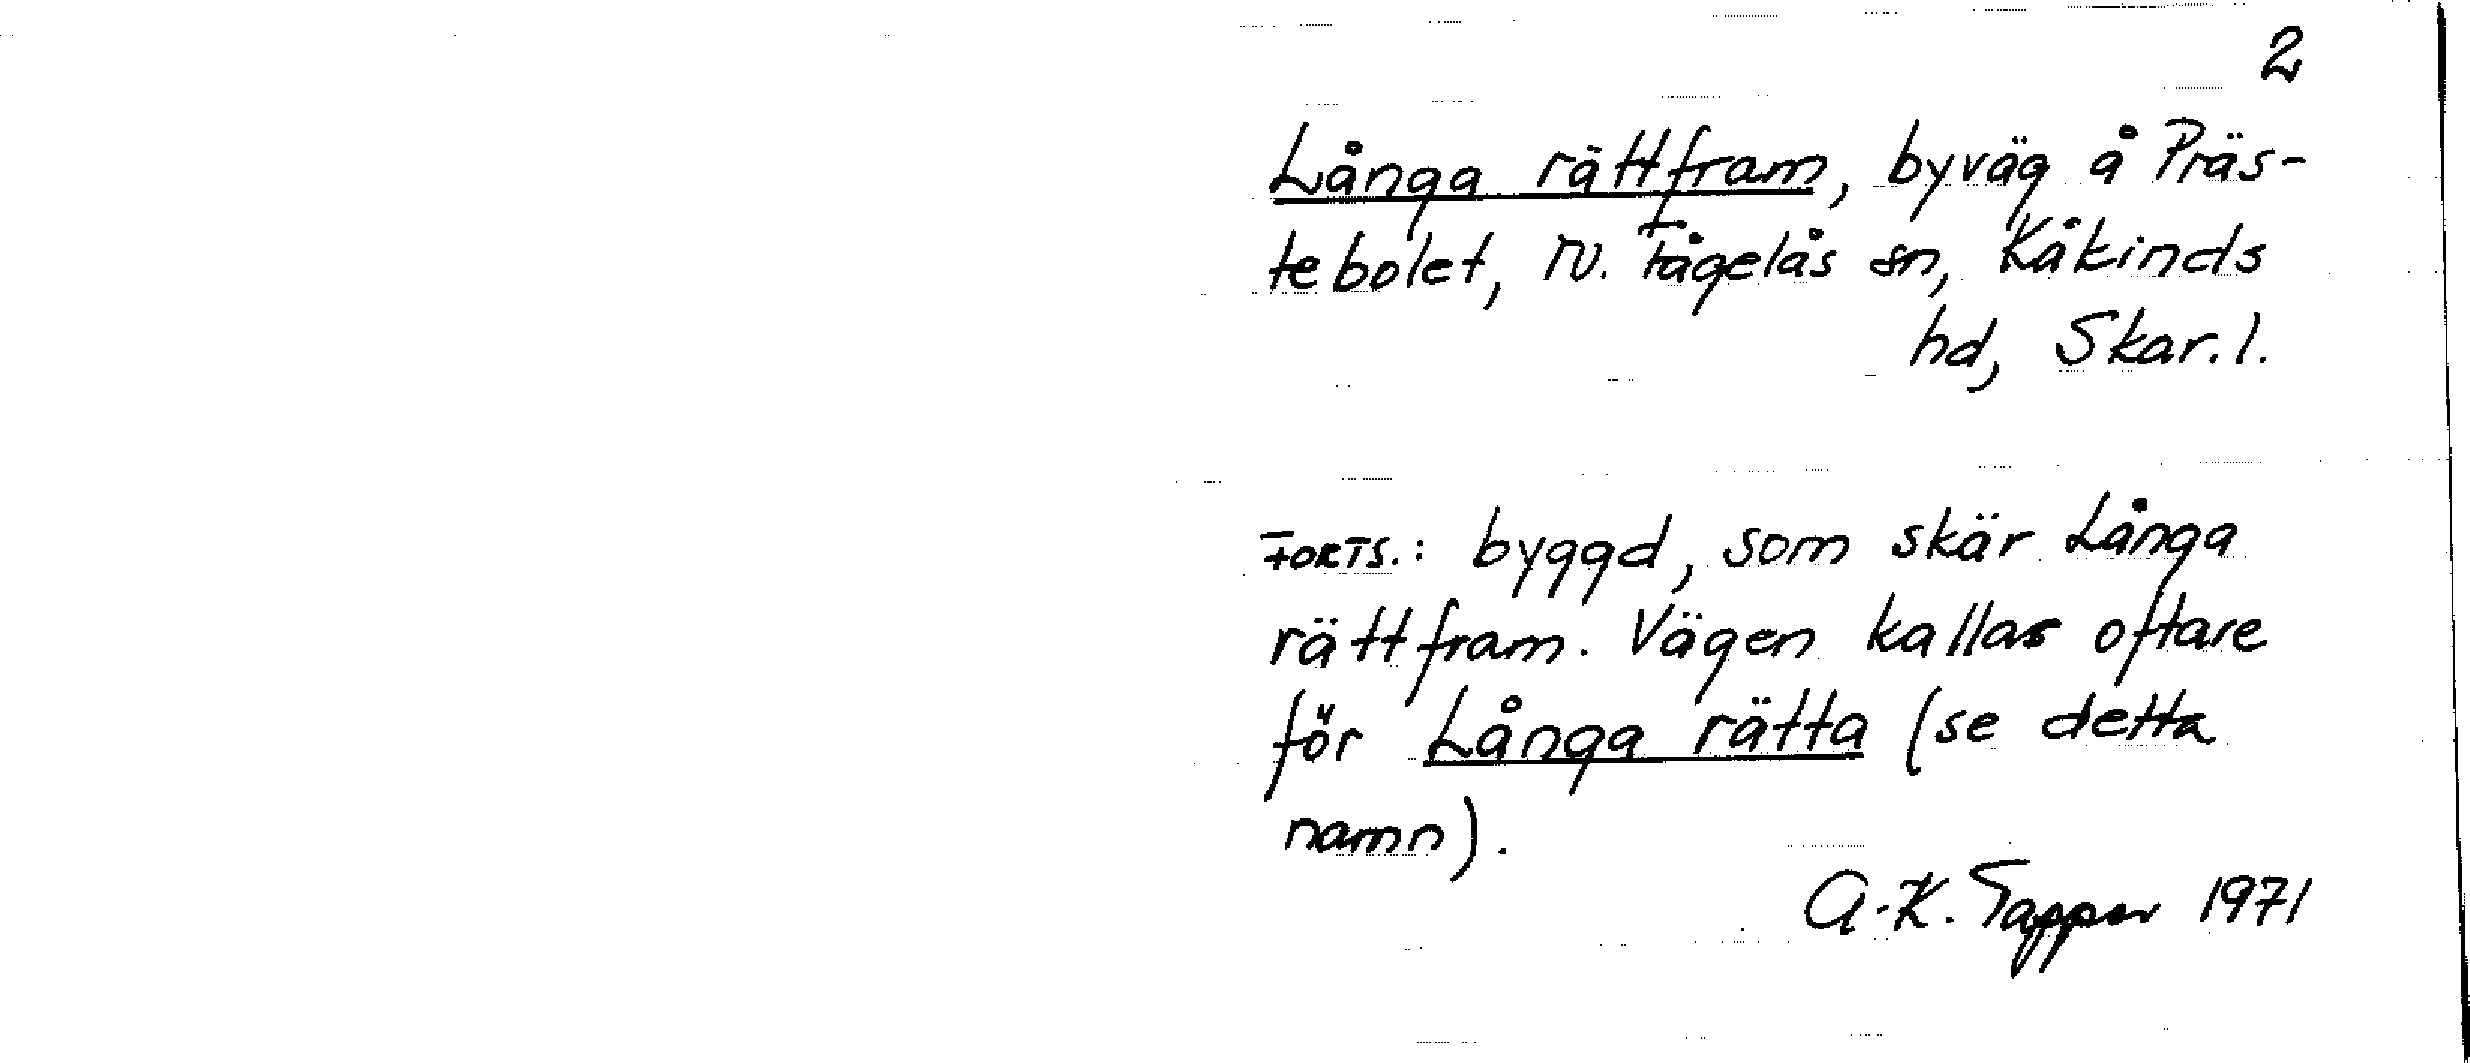 2
Långa rättfram, byväg å Präs-
tebolet, N. Fågelås sn, Kåkinds
hd, Skar. l.
FORTS.: byggd, som skär Långa
rättfram. Vägen kallas oftare
för Långa rätta (se detta
namn).
A.-K. Tapper 1971